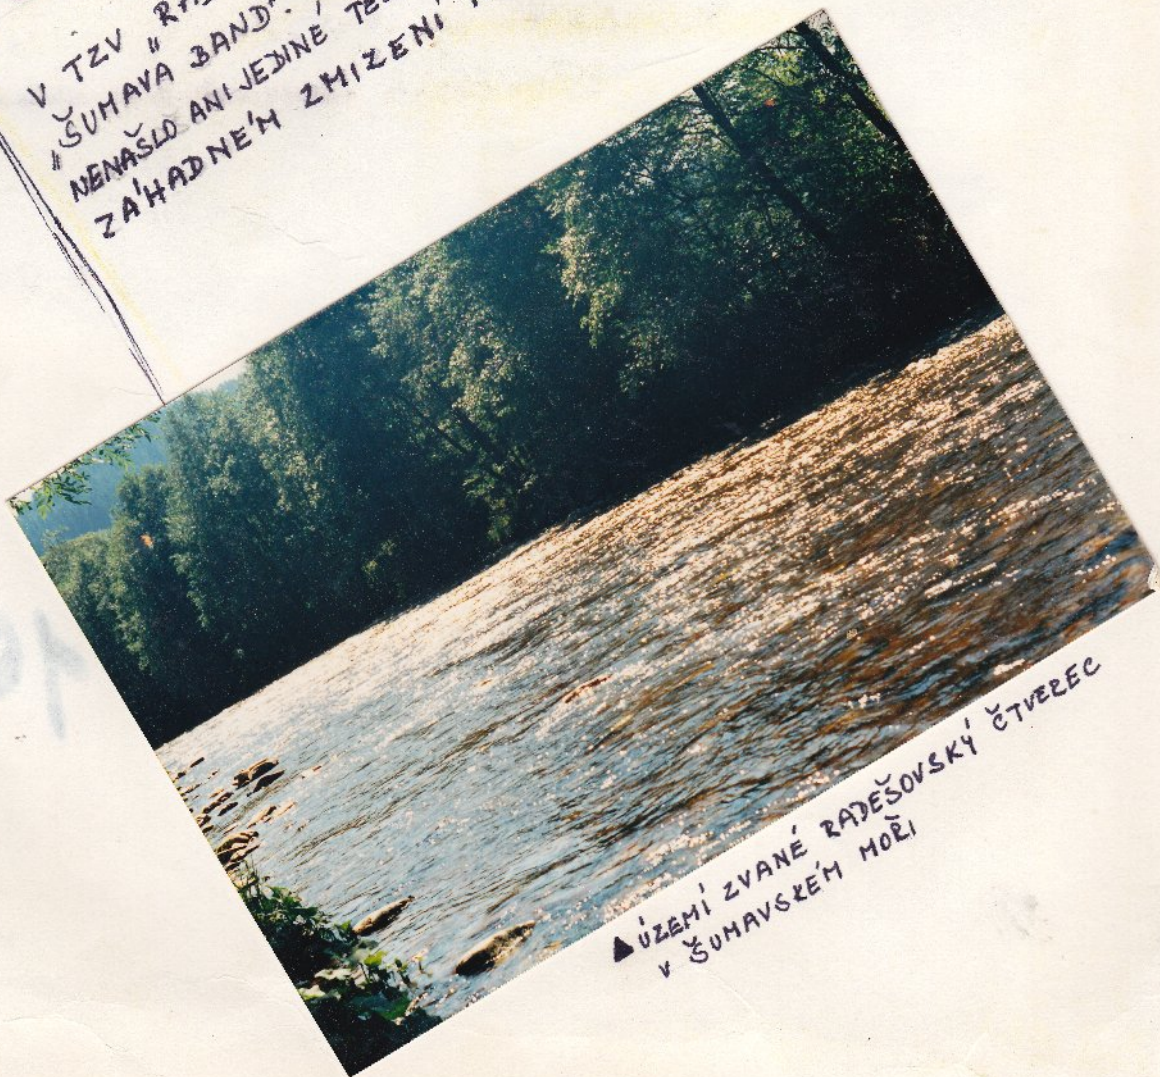 V TZV „
„ŠUMAVA BAND".
NENAŠLO ANI JEDINÉ
ZÁHADNÉM ZMIZENÍ
▲ ÚZEMÍ ZVANÉ RADEŠOVSKÝ ČTVEREC
V ŠUMAVSKÉM MOŘI